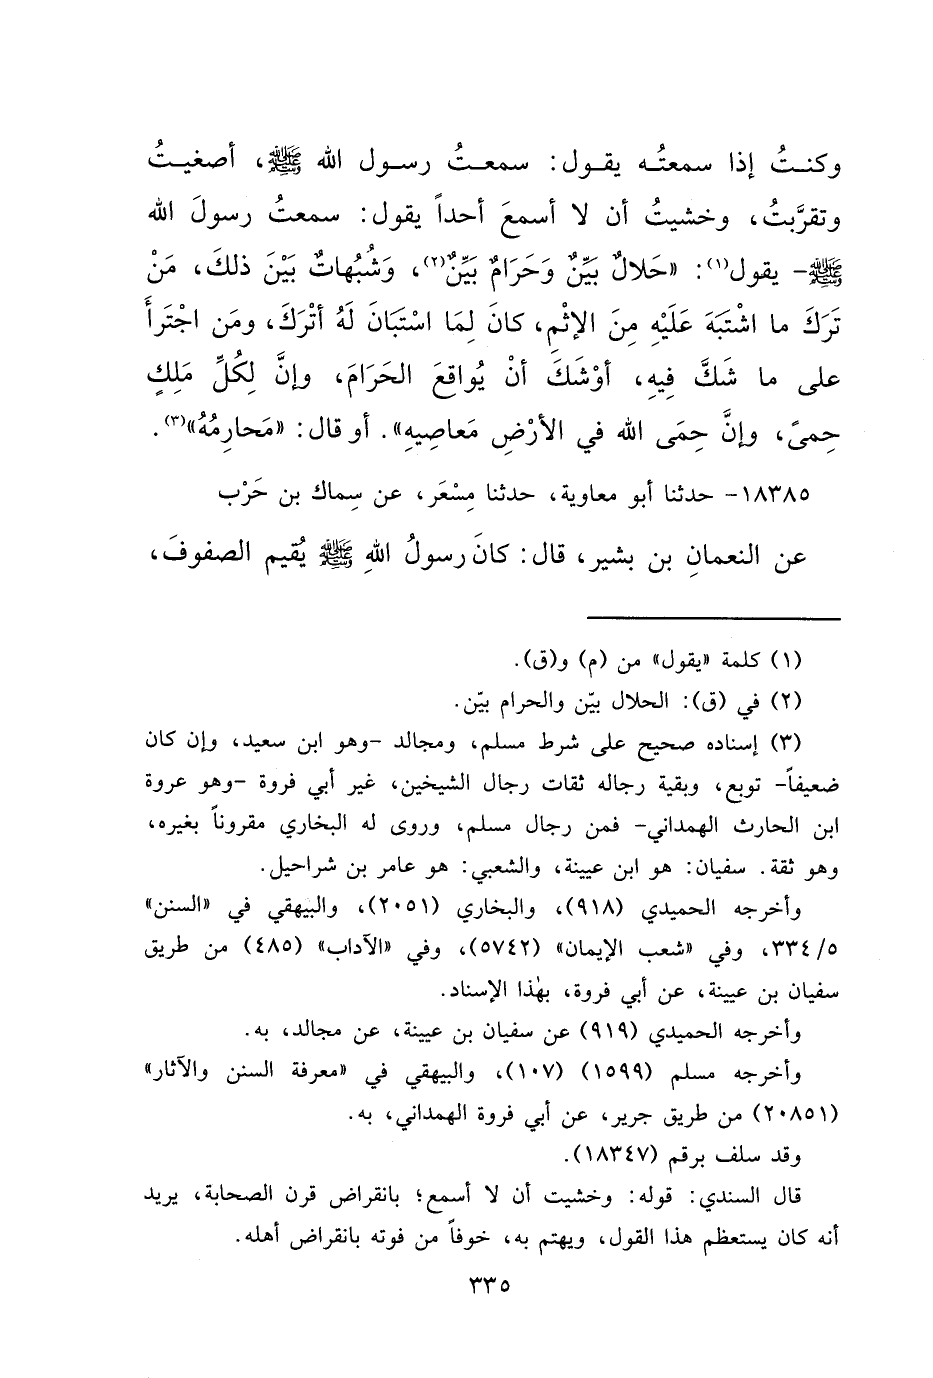 وكنتُ إذا سمعتُه يقول: سمعتُ رسول الله ﷺ، أصغيتُ
وتقرَّبتُ، وخشيتُ أن لا أسمعَ أحداً يقول: سمعتُ رسولَ الله
ﷺ- يقول(١): «حَلالٌ بَيِّنٌ وَحَرامٌ بَيِّنٌ(٢)، وَشُبُهاتٌ بَيْنَ ذلكَ، مَنْ
تَرَكَ ما اشْتَبَهَ عَلَيْهِ مِنَ الإثْمِ، كانَ لِمَا اسْتَبَانَ لَهُ أتْرَكَ، ومَن اجْتَرأَ
على ما شَكَّ فِيهِ، أوْشَكَ أنْ يُواقِعَ الحَرَامَ، وإنَّ لِكُلِّ مَلِكٍ
حِمىً، وإنَّ حِمَى الله في الأرْضِ مَعاصِيهِ». أو قال: «مَحارِمُهُ»(٣).
١٨٣٨٥- حدثنا أبو معاوية، حدثنا مِسْعَر، عن سِماك بن حَرْب
عن النعمانِ بن بشير، قال: كانَ رسولُ اللهِ ﷺ يُقيم الصفوفَ،
(١) كلمة «يقول» من (م) و(ق).
(٢) في (ق): الحلال بيّن والحرام بيّن.
(٣) إسناده صحيح على شرط مسلم، ومجالد -وهو ابن سعيد، وإن كان
ضعيفاً- توبع، وبقية رجاله ثقات رجال الشيخين، غير أبي فروة -وهو عروة
ابن الحارث الهمداني- فمن رجال مسلم، وروى له البخاري مقروناً بغيره،
وهو ثقة. سفيان: هو ابن عيينة، والشعبي: هو عامر بن شراحيل.
وأخرجه الحميدي (٩١٨)، والبخاري (٢٠٥١)، والبيهقي في «السنن»
٥/٣٣٤، وفي «شعب الإيمان» (٥٧٤٢)، وفي «الآداب» (٤٨٥) من طريق
سفيان بن عيينة، عن أبي فروة، بهٰذا الإسناد.
وأخرجه الحميدي (٩١٩) عن سفيان بن عيينة، عن مجالد، به.
وأخرجه مسلم (١٥٩٩) (١٠٧)، والبيهقي في «معرفة السنن والآثار»
(٢٠٨٥١) من طريق جرير، عن أبي فروة الهمداني، به.
وقد سلف برقم (١٨٣٤٧).
قال السندي: قوله: وخشيت أن لا أسمع؛ بانقراض قرن الصحابة، يريد
أنه كان يستعظم هذا القول، ويهتم به، خوفاً من فوته بانقراض أهله.
٣٣٥